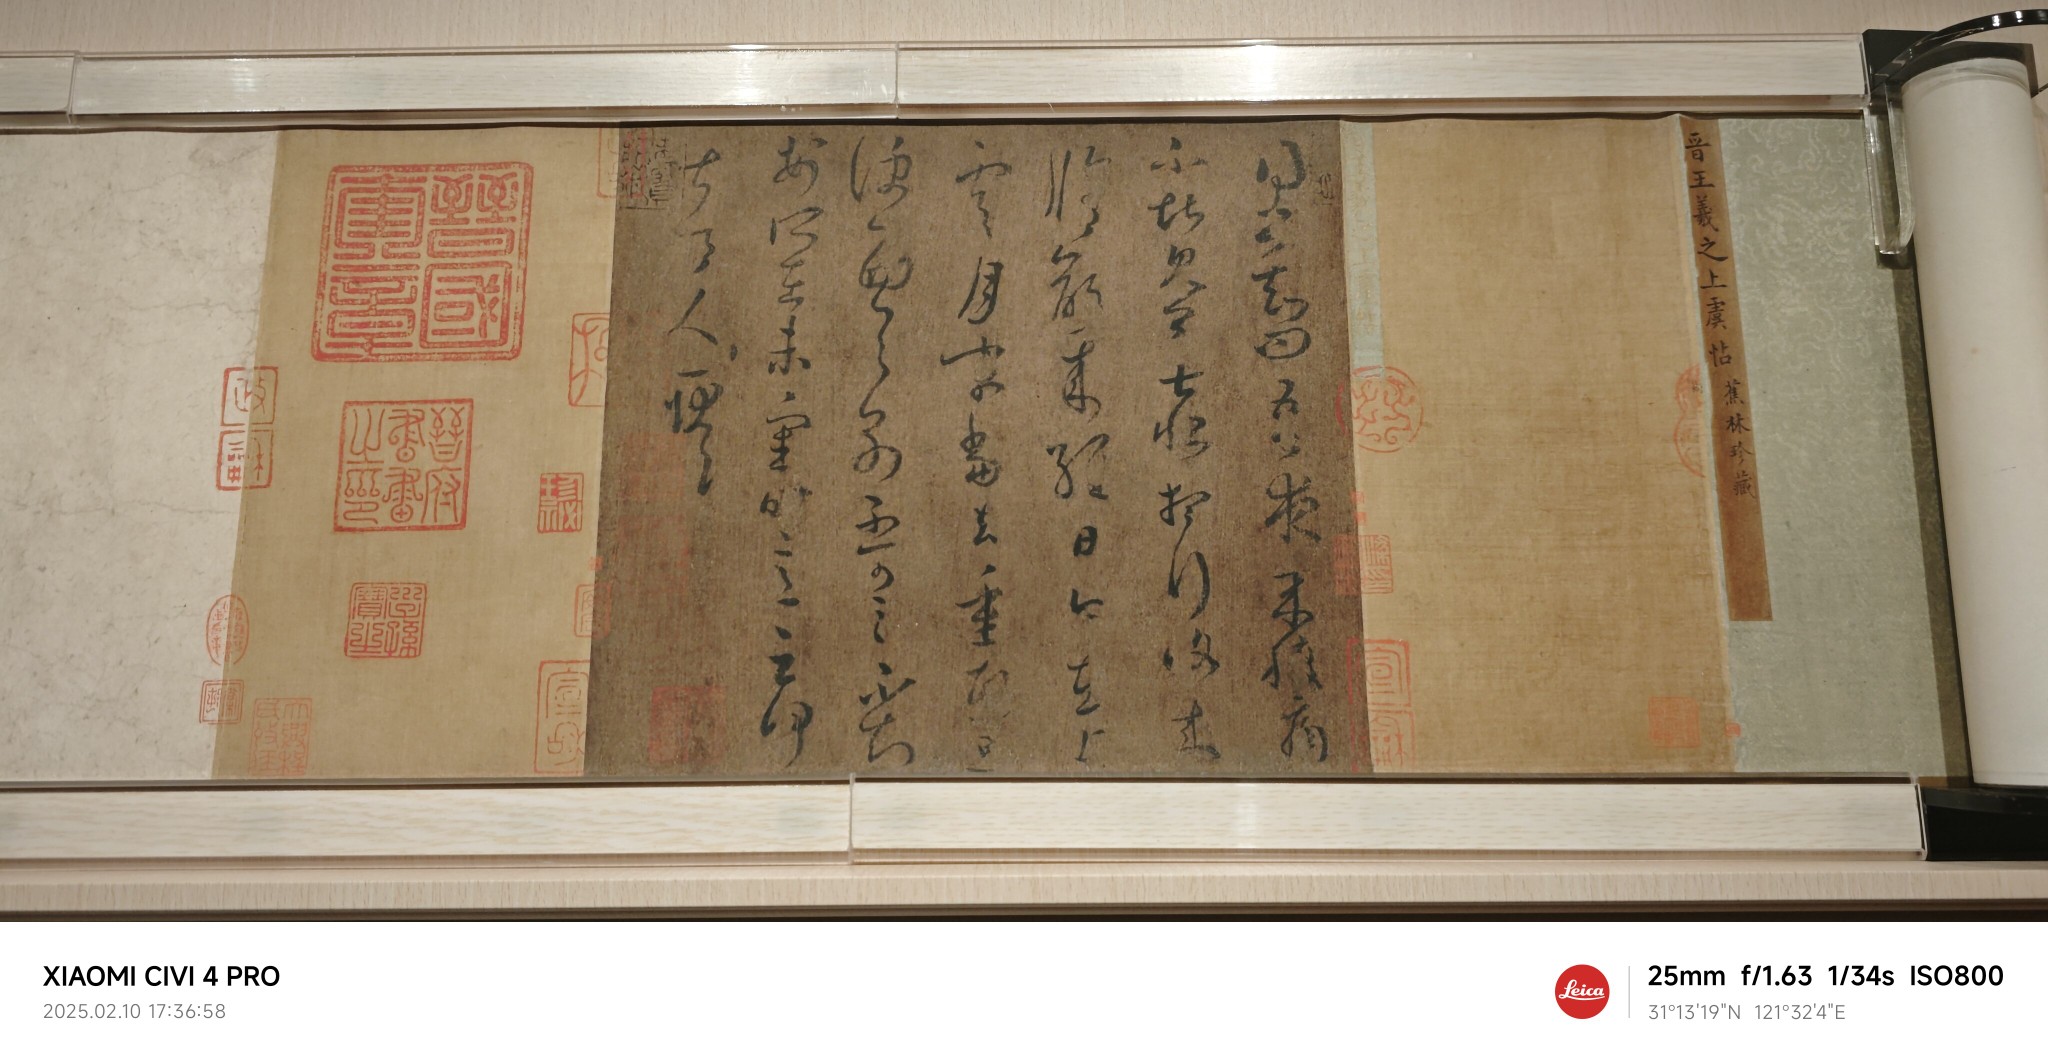 晋王羲之上虞帖 蕉林珍藏
得書知問吾夜来腹痛
不堪見卿甚恨想行復来
脩齡来經日今在上
虞月末當去重熙旦
便西與別不可言不知
安所在未審時意云何
甚令人耿耿
晉國奎章
晉府書畫之印
子孫寶之
政和
宣和
XIAOMI CIVI 4 PRO
2025.02.10 17:36:58
Leica
25mm f/1.63 1/34s ISO800
31°13'19"N 121°32'4"E